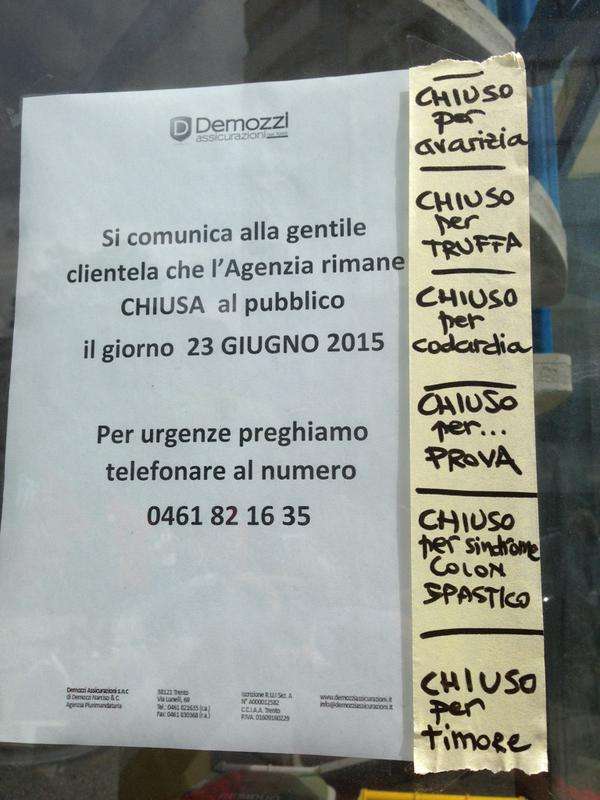 Demozzi
assicurazioni
Si comunica alla gentile
clientela che l'Agenzia rimane
CHIUSA al pubblico
il giorno 23 GIUGNO 2015
Per urgenze preghiamo
telefonare al numero
0461 82 16 35
Demozzi Assicurazioni s.n.c
di Demozzi Narciso & C.
Agenzia Plurimandataria
38121 Trento
Via Lunelli, 69
Tel.: 0461 821635 (r.a.)
Fax: 0461 830368 (r.a.)
Iscrizione R.U.I Sez. A
N° A000012582
C.C.I.A.A. Trento
P.IVA. 01609160229
www.demozziassicurazioni.it
info@demozziassicurazioni.it
CHIUSO
per
avarizia
CHIUSO
per
TRUFFA
CHIUSO
per
codardia
CHIUSO
per...
PROVA
CHIUSO
per sindrome
COLON
SPASTICO
CHIUSO
per
timore